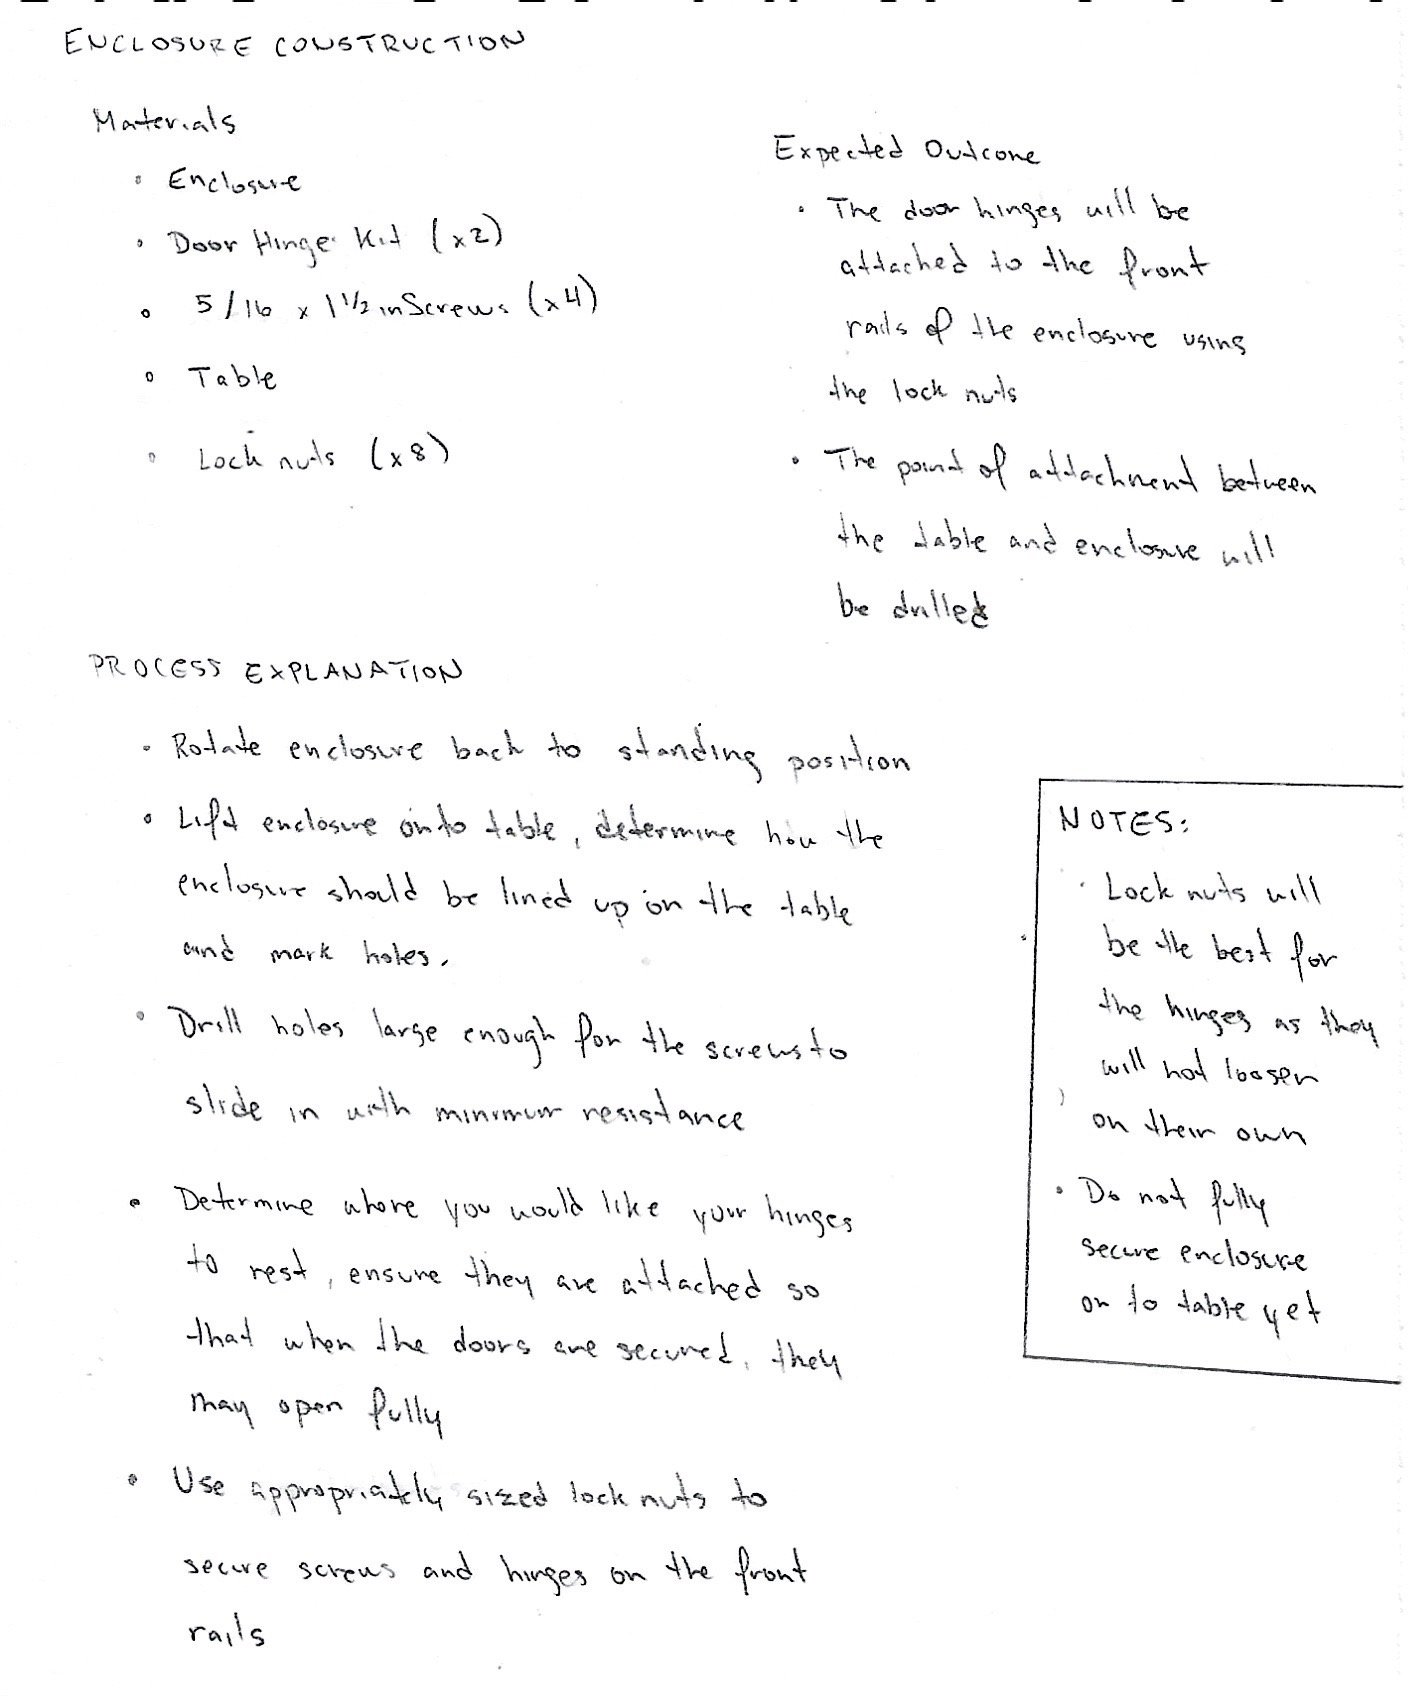 ENCLOSURE CONSTRUCTION
Materials
• Enclosure
• Door Hinge Kit (x2)
• 5/16 x 1 1/2 in Screws (x4)
• Table
• Lock nuts (x8)
Expected Outcome
• The door hinges will be
attached to the front
rails of the enclosure using
the lock nuts
• The point of attachment between
the table and enclosure will
be drilled
PROCESS EXPLANATION
• Rotate enclosure back to standing position
• Lift enclosure onto table, determine how the
enclosure should be lined up on the table
and mark holes.
• Drill holes large enough for the screws to
slide in with minimum resistance
• Determine where you would like your hinges
to rest, ensure they are attached so
that when the doors are secured, they
may open fully
• Use appropriately sized lock nuts to
secure screws and hinges on the front
rails
NOTES:
• Lock nuts will
be the best for
the hinges as they
will not loosen
on their own
• Do not fully
secure enclosure
on to table yet